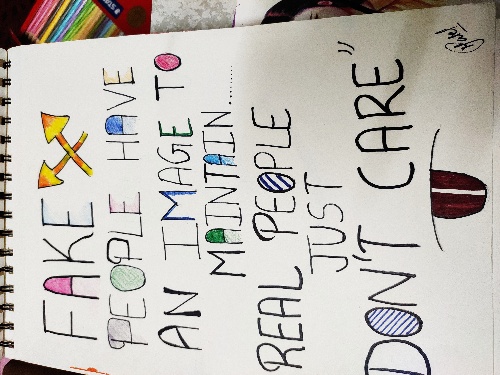 FAKE
PEOPLE HAVE
AN IMAGE TO
MAINTAIN........
REAL PEOPLE
JUST
DON'T CARE"